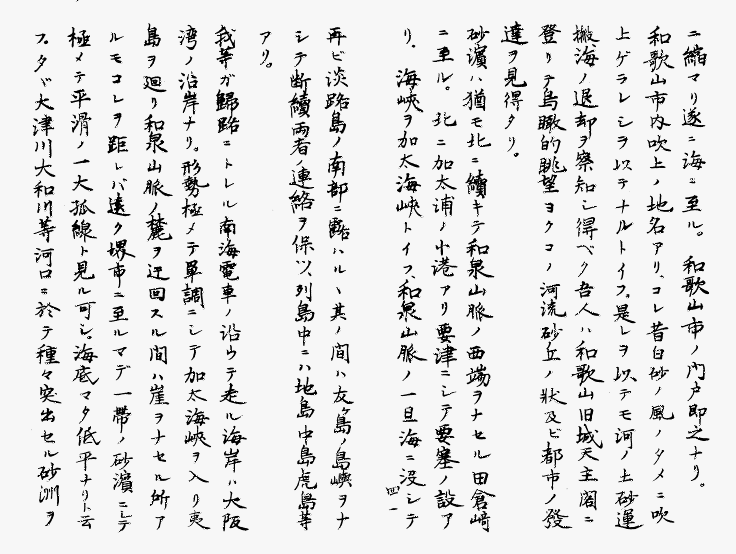 ニ縮マリ遂ニ海ニ至ル。和歌山市ノ門戸即之ナリ。
和歌山市内吹上ノ地名アリ、コレ昔白砂ノ風ノタメニ吹
上ゲラレシヲ以テナルトイフ。是レヲ以テモ河ノ土砂運
搬海ノ退却ヲ察知シ得ベク吾人ハ和歌山旧城天主閣ニ
登リテ鳥瞰的眺望ヨクコノ河流砂丘ノ状及ビ都市ノ發
達ヲ見得タリ。
砂濱ハ猶モ北ニ續キテ和泉山脈ノ西端ヲナセル田倉﨑
ニ至ル。北ニ加太浦ノ小港アリ要津ニシテ要塞ノ設ア
リ、海峡ヲ加太海峡トイフ、和泉山脈ノ一旦海ニ没シテ
四一
再ビ淡路島ノ南部ニ露ハルヽ其ノ間ハ友ヶ島ノ島嶼ヲナ
シテ断續両者ノ連絡ヲ保ツ、列島中ニハ地島中島虎島等
アリ。
我等ガ歸路ニトレル南海電車ノ沿ウテ走ル海岸ハ大阪
湾ノ沿岸ナリ。形勢極メテ單調ニシテ加太海峡ヲ入リ夷
島ヲ廻リ和泉山脈ノ麓ヲ迂回スル間ハ崖ヲナセル所ア
ルモコレヲ距レバ遠ク堺市ニ至ルマデ一帶ノ砂濱ニシテ
極メテ平滑ノ一大弧線ト見ル可シ。海底マタ低平ナリト云
フ、タヾ大津川大和川等河口ニ於テ種々突出セル砂洲ヲ